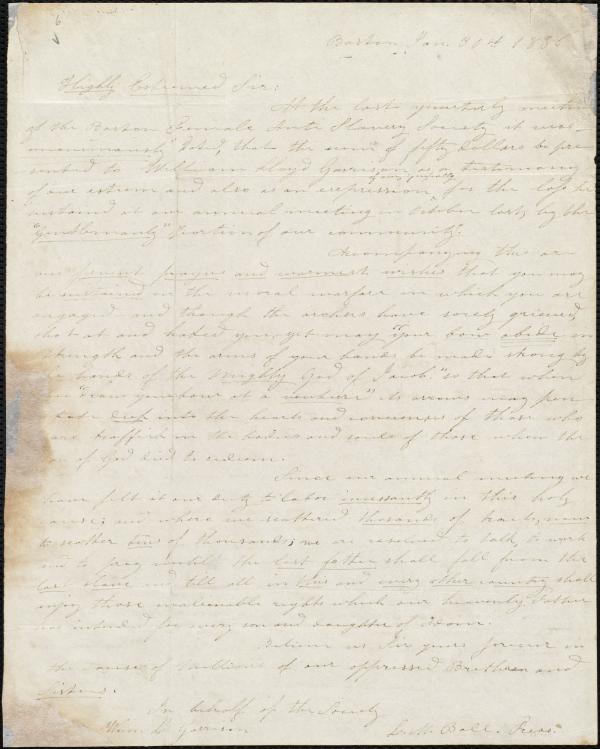 6
Boston Jan. 30th 1836
Highly Esteemed Sir:
At the last quarterly meeting
of the Boston Female Anti Slavery Society it was
unanimously Voted, that the sum of fifty dollars be pre-
sented to William Lloyd Garrison as a testimony
of our esteem and also as an expression for the loss he
sustained at our annual meeting in October last, by the
"Gentlemanly" portion of our community.
Accompanying this are
our fervent prayers and warmest wishes that you may
be sustained in the moral warfare in which you are
engaged and though the archers have sorely grieved,
shot at and hated you, yet may "your bow abide in
strength and the arms of your hands be made strong by
the hands of the Mighty God of Jacob." so that when
"draw your bow at a venture" its arrows may pen-
etrate deep into the hearts and consciences of those who
are traffick in the bodies and souls of those whom the
Son of God died to redeem.
Since our annual meeting we
have felt it our duty to labor incessantly in this holy
cause; and where we scattered thousands of tracts, now
to scatter tens of thousands; we are resolved to talk, to work
and to pray until the last fetter shall fall from the
last slave and till all in this and every other country shall
enjoy those inalienable rights which our heavenly Father
has intended for every son and daughter of Adam.
Believe us Sir yours forever in
the cause of Millions of our oppressed Brethren and
Sisters.
In behalf of the Society
Wm L. Garrison
L. M. Ball. Pres.